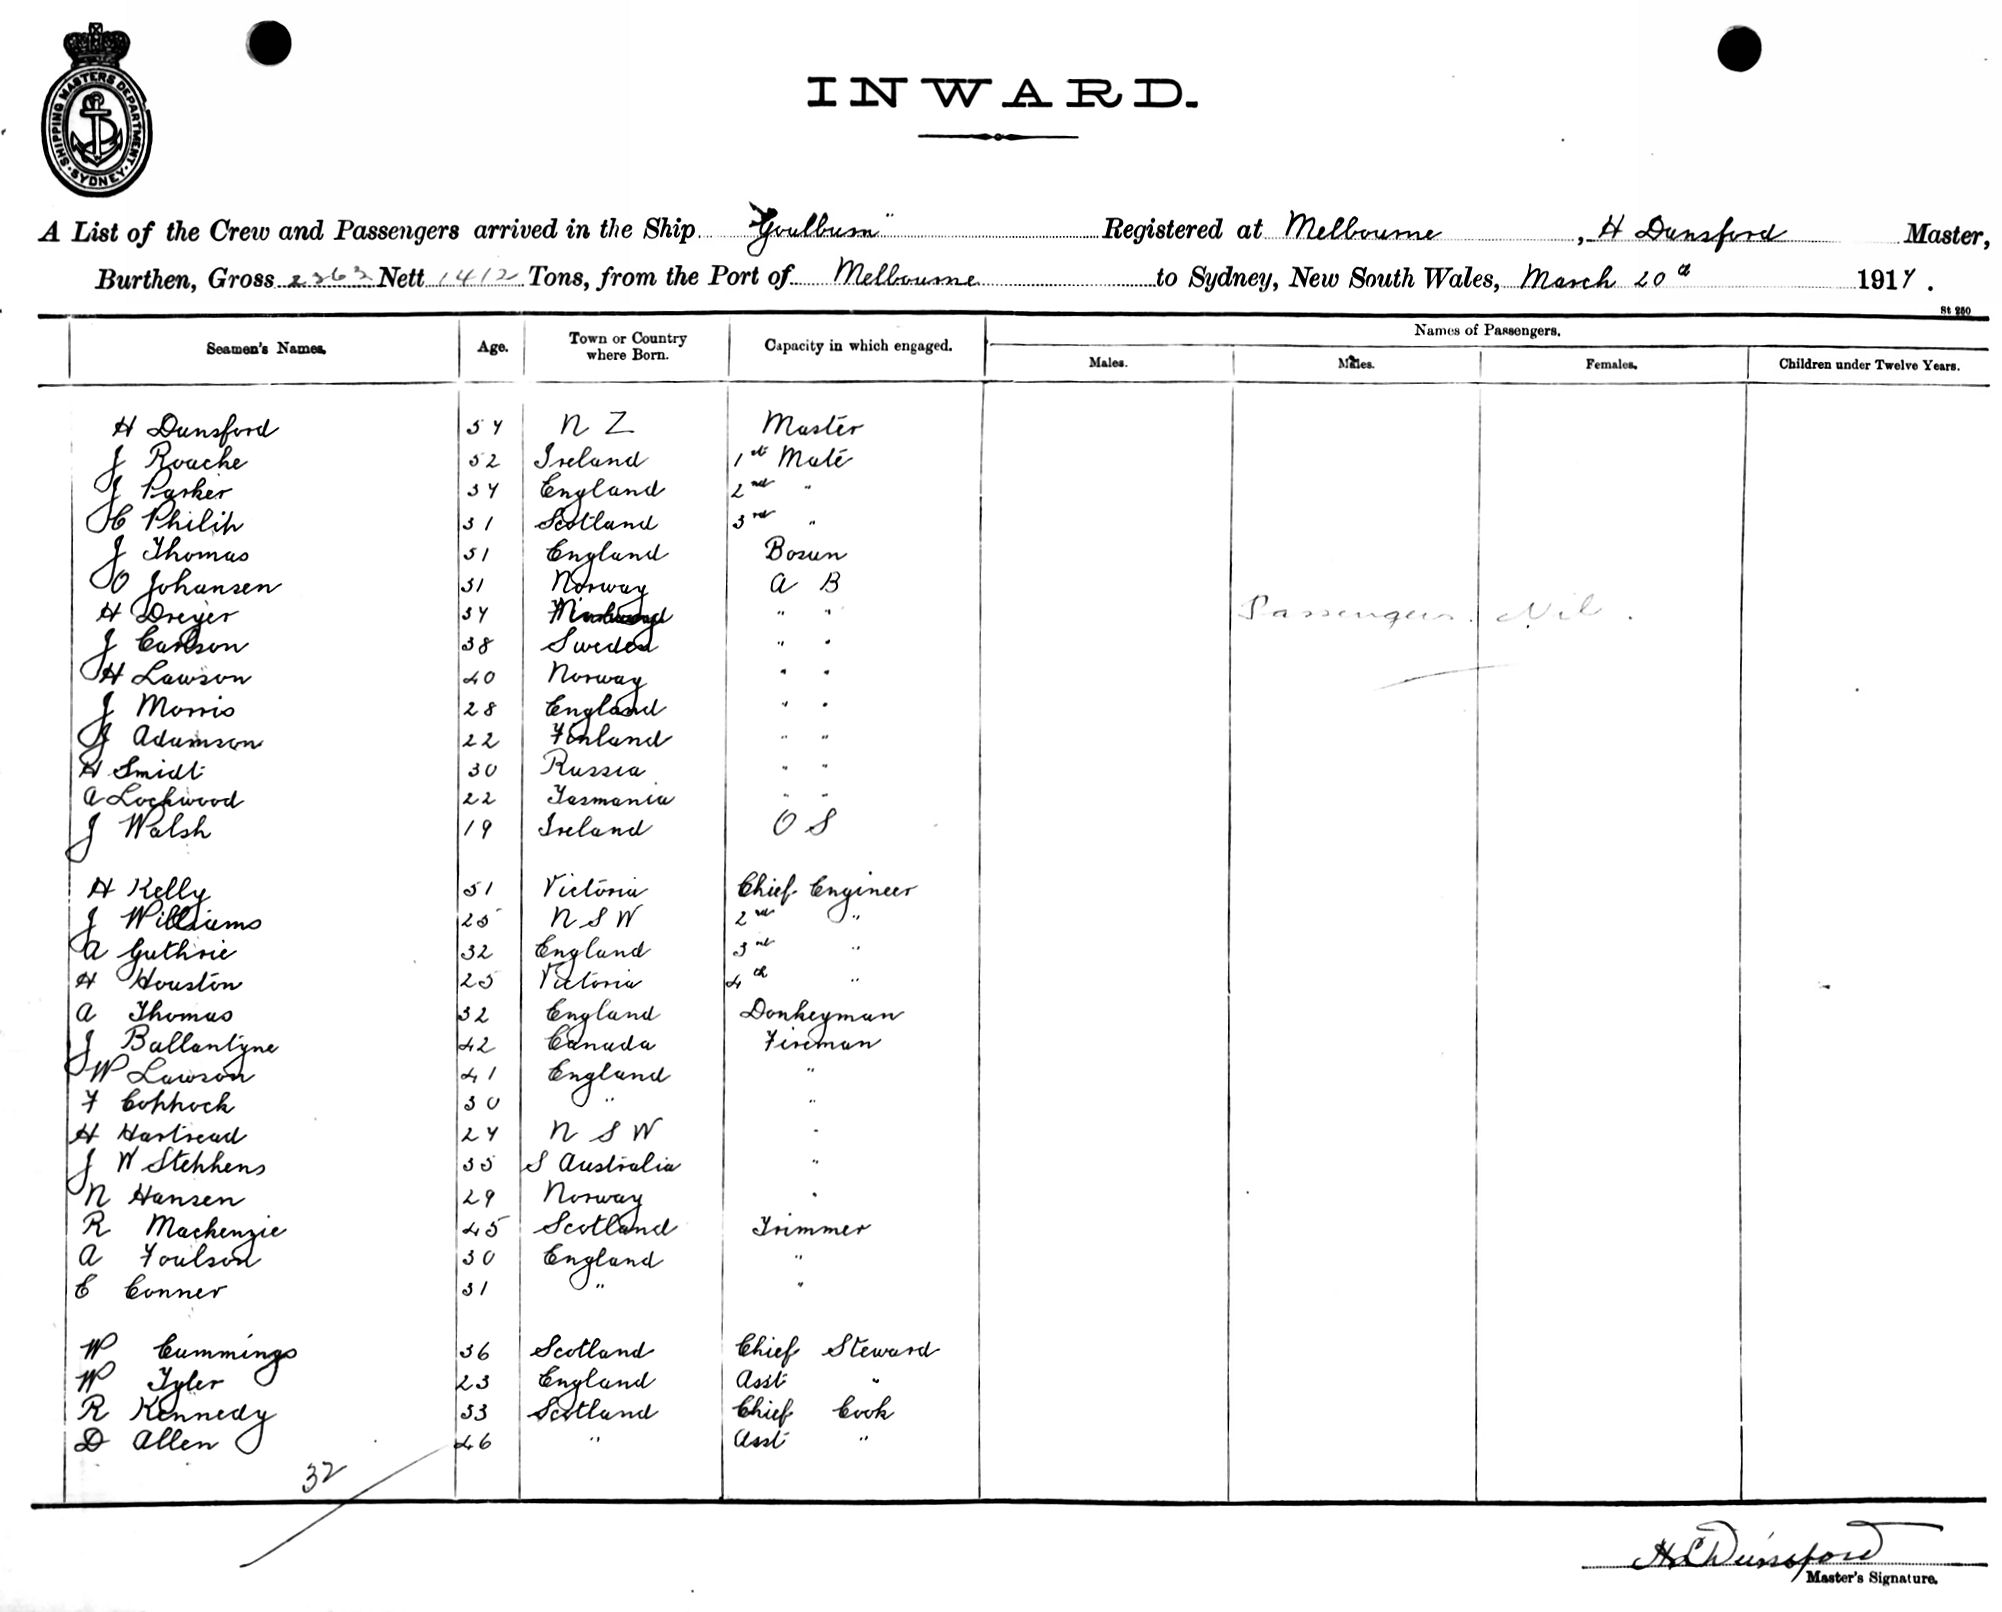 SHIPPING MASTERS DEPARTMENT
SYDNEY
INWARD.
A List of the Crew and Passengers arrived in the Ship "Goulburn" Registered at Melbourne, H Dunsford Master,
Burthen, Gross 2363 Nett 1412 Tons, from the Port of Melbourne to Sydney, New South Wales, March 20th 1917.
St 250
Seamen's Names. Age. Town or Country where Born. Capacity in which engaged. Names of Passengers.
Males. Males. Females. Children under Twelve Years.
H Dunsford 54 N Z Master
J Roache 52 Ireland 1st Mate
J Parker 34 England 2nd "
H Philip 31 Scotland 3rd "
J Thomas 51 England Bosun
O Johansen 31 Norway A B
H Dreyer 34 " "
Passengers Nil.
J Carlson 38 Sweden " "
H Lawson 40 Norway " "
J Morris 28 England " "
J Adamson 22 Finland " "
H Smidt 30 Russia " "
A Lockwood 22 Tasmania " "
J Walsh 19 Ireland O S
H Kelly 51 Victoria Chief Engineer
J Williams 25 N S W 2nd "
A Guthrie 32 England 3rd "
H Houston 25 Victoria 4th "
A Thomas 32 England Donkeyman
J Ballantyne 42 Canada Fireman
W Lawson 41 England "
F Coppock 30 " "
H Hartread 24 N S W "
J W Stephens 35 S Australia "
N Hansen 29 Norway "
R Mackenzie 45 Scotland Trimmer
A Foulson 30 England "
E Conner 31 " "
W Cummings 36 Scotland Chief Steward
W Tyler 23 England Asst "
R Kennedy 53 Scotland Chief Cook
D Allen 46 " Asst "
32
H Dunsford
Master's Signature.